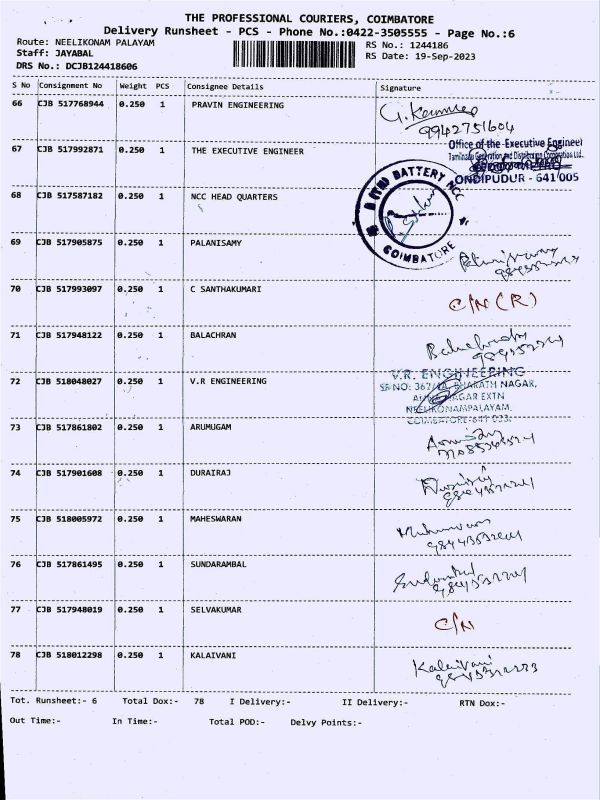 THE PROFESSIONAL COURIERS, COIMBATORE
Delivery Runsheet - PCS - Phone No.:0422-3505555 - Page No.:6
Route: NEELIKONAM PALAYAM
RS No.: 1244186
Staff: JAYABAL
RS Date: 19-Sep-2023
DRS No.: DCJB124418606
S No Consignment No Weight PCS Consignee Details Signature
66 CJB 517768944 0.250 1 PRAVIN ENGINEERING
9942751604
67 CJB 517992871 0.250 1 THE EXECUTIVE ENGINEER
Office of the Executive Engineer
Tamilnadu Generation and Distribution Corporation Ltd.
ONDIPUDUR - 641 005
68 CJB 517587182 0.250 1 NCC HEAD QUARTERS
BATTERY NCC
COIMBATORE
69 CJB 517905875 0.250 1 PALANISAMY
70 CJB 517993097 0.250 1 C SANTHAKUMARI
C/N (R)
71 CJB 517948122 0.250 1 BALACHRAN
72 CJB 518048027 0.250 1 V.R ENGINEERING
V.R. ENGINEERING
BHARATH NAGAR,
NAGAR EXTN
NEELIKONAMPALAYAM,
COIMBATORE-641 033.
73 CJB 517861802 0.250 1 ARUMUGAM
74 CJB 517901608 0.250 1 DURAIRAJ
75 CJB 518005972 0.250 1 MAHESWARAN
76 CJB 517861495 0.250 1 SUNDARAMBAL
77 CJB 517948019 0.250 1 SELVAKUMAR
C/N
78 CJB 518012298 0.250 1 KALAIVANI
Kalaivani
Tot. Runsheet:- 6 Total Dox:- 78 I Delivery:- II Delivery:- RTN Dox:-
Out Time:- In Time:- Total POD:- Delvy Points:-